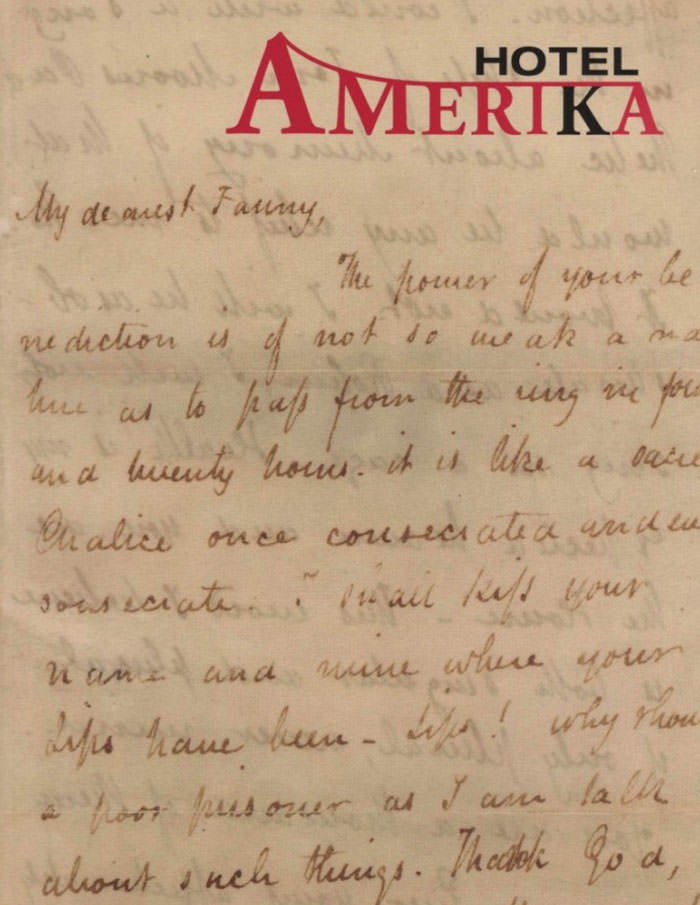 HOTEL
AMERIKA
My dearest Fanny,
The power of your be
nediction is of not so weak a na
ture as to pass from the ring in fou
and twenty hours. it is like a sacre
Chalice once consecrated and ev
consecrate. I shall kiss your
name and mine where your
Lips have been - Lips! why shou
a poor prisoner as I am talk
about such things. Thank God,